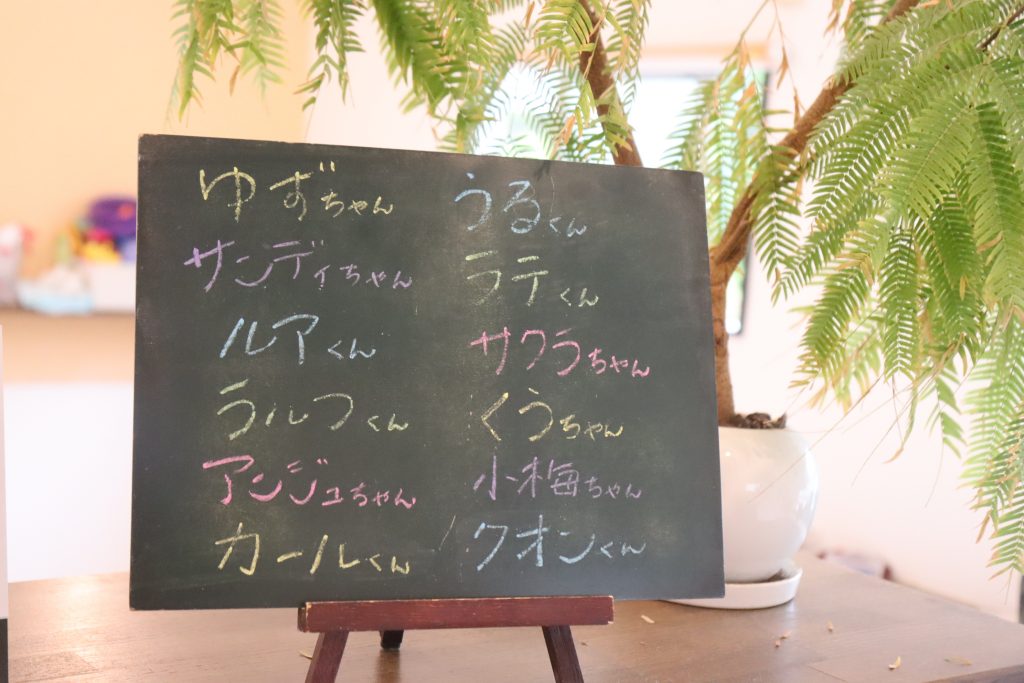 ゆずちゃん
サンディちゃん
ルアくん
ラルフくん
アンジュちゃん
カールくん
うるくん
ラテくん
サクラちゃん
くうちゃん
小梅ちゃん
クオンくん